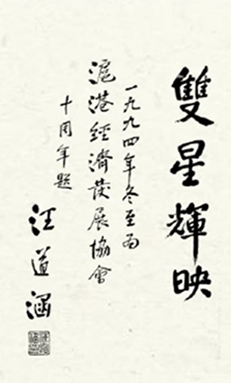 雙星輝映
一九九四年冬至為
滬港經濟發展協會
十周年題
汪道涵